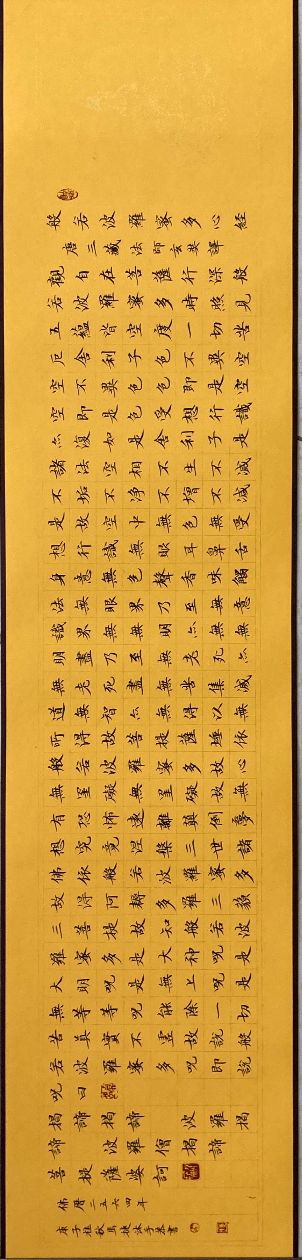 般若波羅蜜多心經
唐三藏法師玄奘譯
觀自在菩薩行深般
若波羅蜜多時照見
五蘊皆空度一切苦
厄舍利子色不異空
空不異色色即是空
空即是色受想行識
亦復如是舍利子是
諸法空相不生不滅
不垢不淨不增不減
是故空中無色無受
想行識無眼耳鼻舌
身意無色聲香味觸
法無眼界乃至無意
識界無無明亦無無
明盡乃至無老死亦
無老死盡無苦集滅
道無智亦無得以無
所得故菩提薩埵依
般若波羅蜜多故心
無罣礙無罣礙故無
有恐怖遠離顛倒夢
想究竟涅槃三世諸
佛依般若波羅蜜多
故得阿耨多羅三藐
三菩提故知般若波
羅蜜多是大神呪是
大明呪是無上呪是
無等等呪能除一切
苦真實不虛故說般
若波羅蜜多呪即說
呪曰
揭諦揭諦 波羅揭
諦 波羅僧揭諦
菩提薩婆訶
佛曆二五六四年
庚子桂秋馬 手恭書